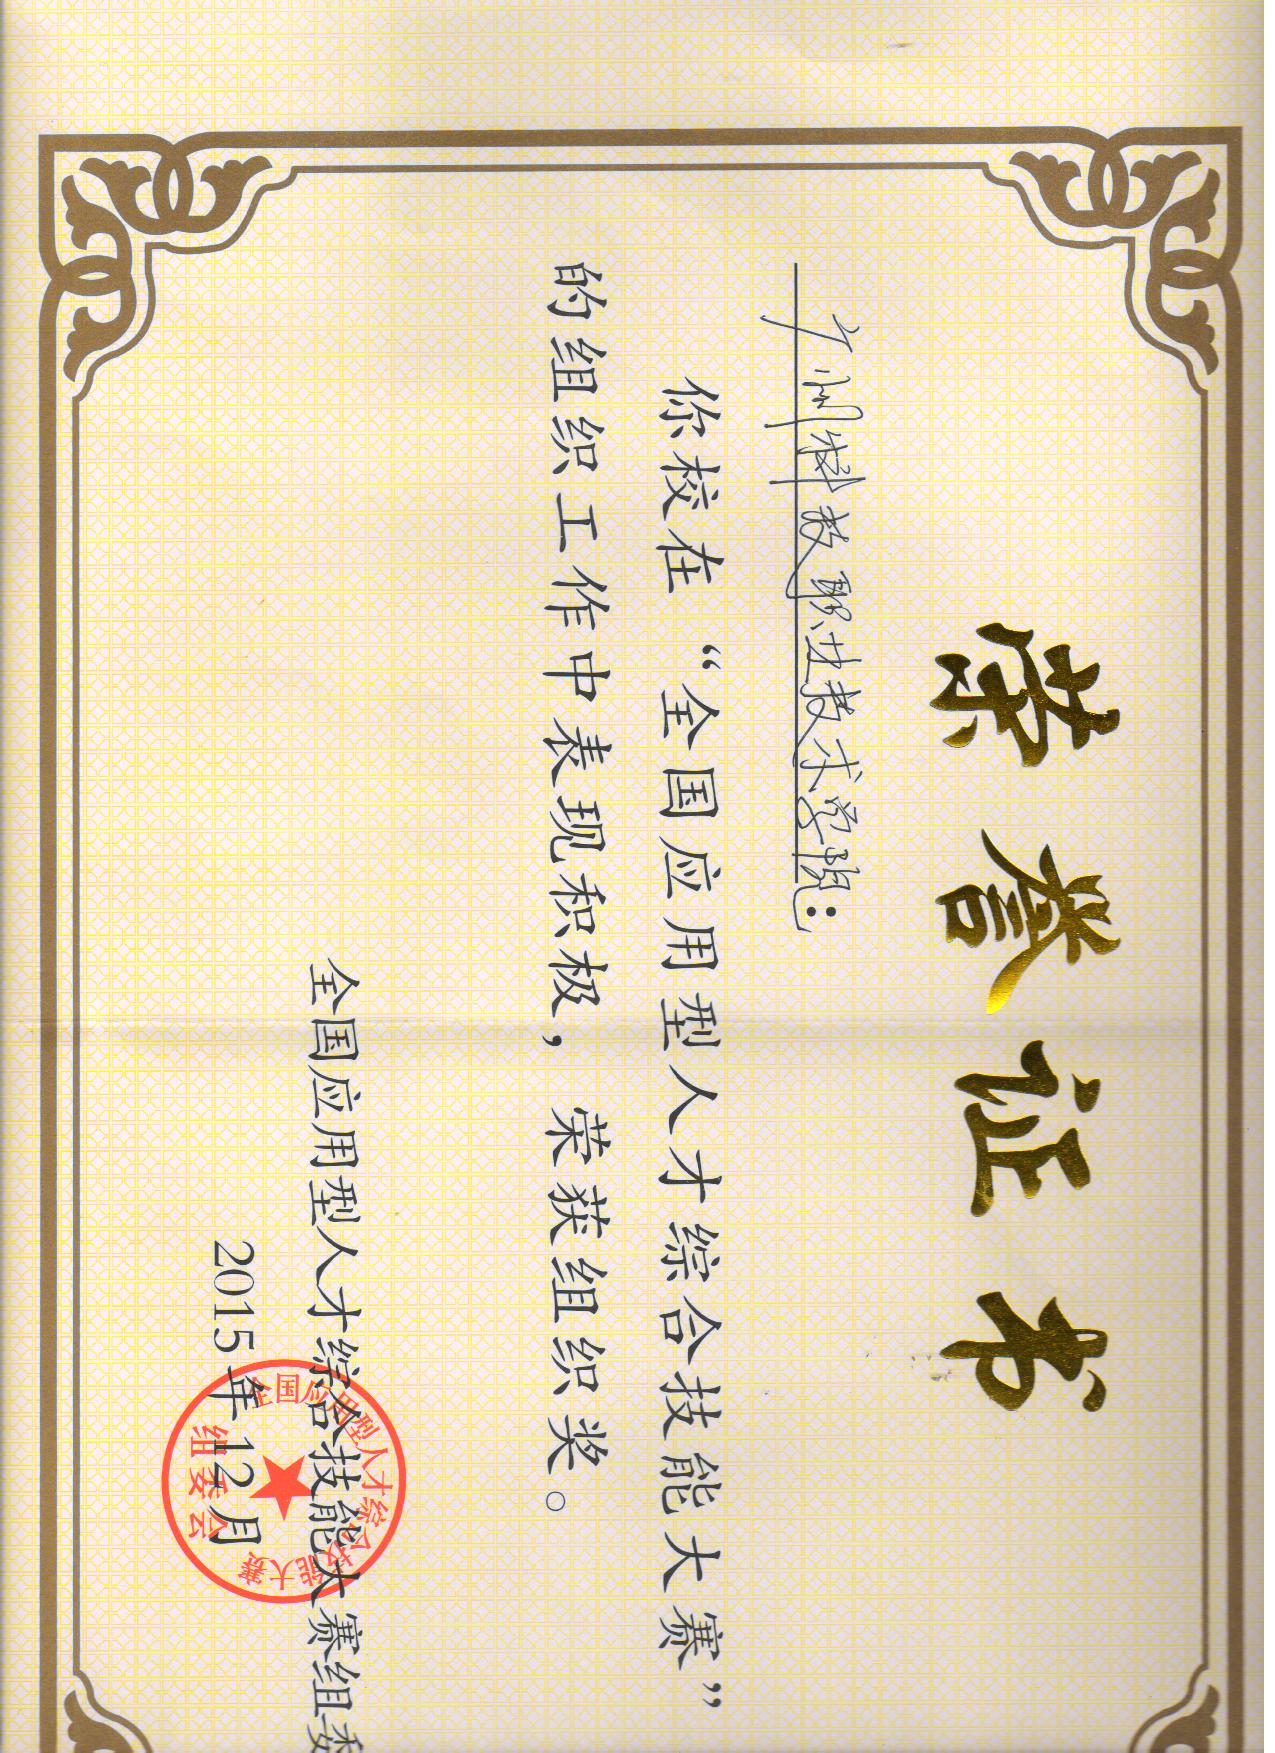 荣誉证书
广州科技职业技术学院：
你校在“全国应用型人才综合技能大赛”
的组织工作中表现积极，荣获组织奖。
全国应用型人才综合技能大赛组委
2015年12月
全国应用型人才综合技能大赛
组委会